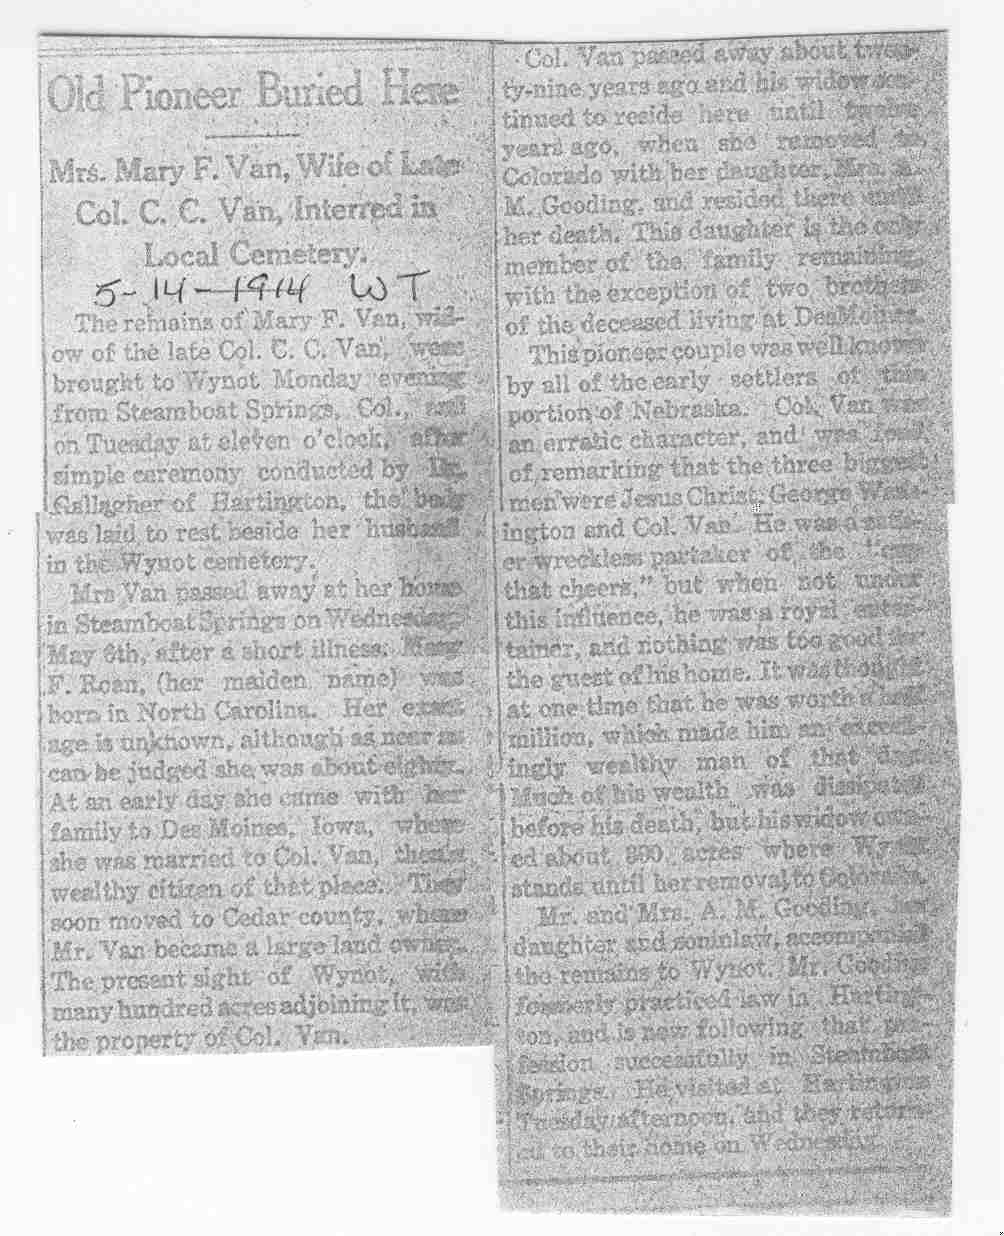 Old Pioneer Buried Here
Mrs. Mary F. Van, Wife of Late
Col. C. C. Van, Interred in
Local Cemetery.
5-14-1914 WT
The remains of Mary F. Van, wid-
ow of the late Col. C. C. Van, were
brought to Wynot Monday evening
from Steamboat Springs, Col., and
on Tuesday at eleven o'clock, after
simple ceremony conducted by Dr.
Gallagher of Hartington, the body
was laid to rest beside her husband
in the Wynot cemetery.
Mrs Van passed away at her home
in Steamboat Springs on Wednesday,
May 6th, after a short illness. Mary
F. Roan, (her maiden name) was
born in North Carolina. Her exact
age is unknown, although as near as
can be judged she was about eighty.
At an early day she came with her
family to Des Moines, Iowa, where
she was married to Col. Van, then a
wealthy citizen of that place. They
soon moved to Cedar county, where
Mr. Van became a large land owner.
The present sight of Wynot, with
many hundred acres adjoining it, was
the property of Col. Van.
Col. Van passed away about twen-
ty-nine years ago and his widow con-
tinued to reside here until twelve
years ago, when she removed to
Colorado with her daughter, Mrs. A.
M. Gooding, and resided there until
her death. This daughter is the only
member of the family remaining,
with the exception of two brothers
of the deceased living at DesMoines.
This pioneer couple was well known
by all of the early settlers of this
portion of Nebraska. Col. Van was
an erratic character, and was fond
of remarking that the three biggest
men were Jesus Christ, George Wash-
ington and Col. Van. He was a rath-
er wreckless partaker of the "cup
that cheers," but when not under
this influence, he was a royal enter-
tainer, and nothing was too good for
the guest of his home. It was thought
at one time that he was worth a half
million, which made him an exceed-
ingly wealthy man of that day.
Much of his wealth was dissipated
before his death, but his widow own-
ed about 800 acres where Wynot
stands until her removal to Colorado.
Mr. and Mrs. A. M. Gooding, her
daughter and soninlaw, accompanied
the remains to Wynot. Mr. Gooding
formerly practiced law in Harting-
ton, and is now following that pro-
fession successfully in Steamboat
Springs. He visited at Hartington
Tuesday afternoon, and they return-
ed to their home on Wednesday.